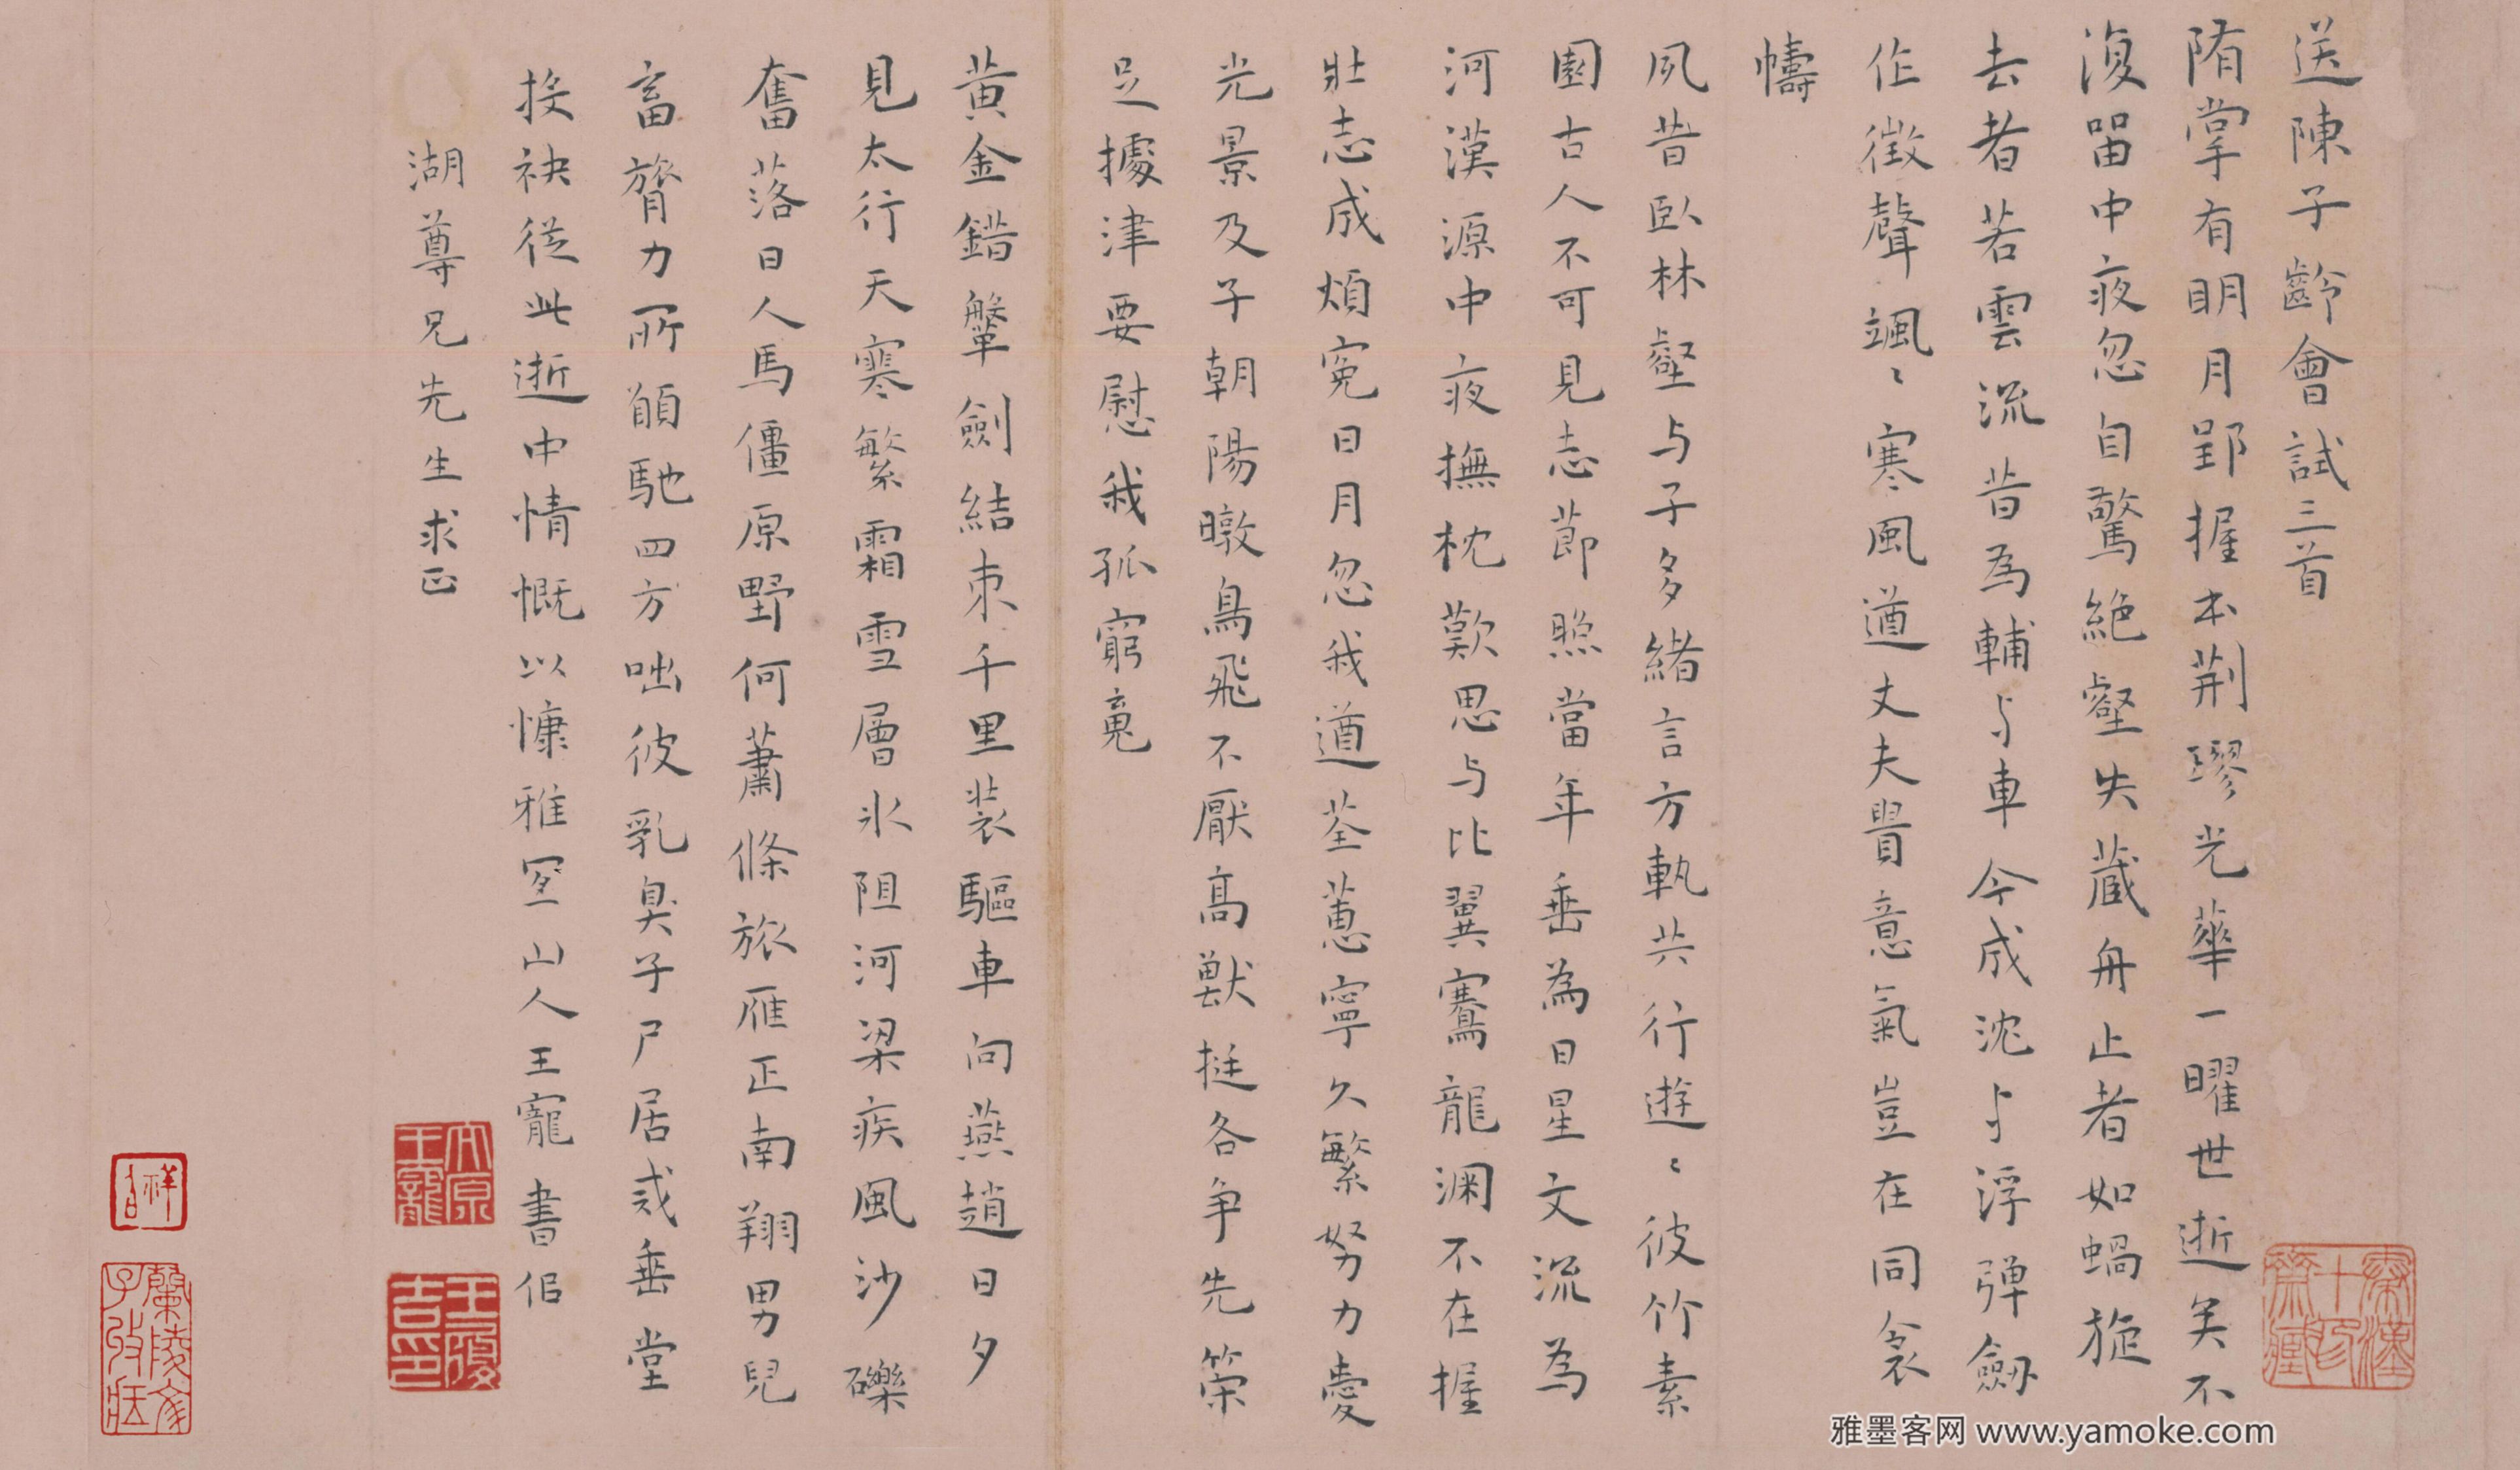 送陳子齡會試三首
隋掌有明月郢握本荆璆光華一曜世逝矣不
復留中夜忽自驚絶壑失藏舟止者如蝸旋
去者若雲流昔為輔与車今成沈与浮彈劒
作徵聲聲颯颯寒風遒丈夫畧意氣豈在同衾
幬
夙昔臥林壑与子多緒言方軌共行遊遊彼竹素
園古人不可見志節照當年垂為日星文流為
河漢源中夜撫枕歎思与比翼騫龍淵不在握
壯志成煩寃日月忽我遒荃蕙寧久繁努力愛
光景及子朝陽暾鳥飛不厭高獸挺各争先策
足據津要慰我孤窮䰟
黃金錯鞶劍結束千里裝驅車向燕趙日夕
見太行天寒繁霜雪層氷阻河梁疾風沙礫
奮落日人馬僵原野何蕭條旅雁正南翔男兒
畜膂力所願馳四方咄彼乳臭子尸居戒垂堂
投袂從此逝中情慨以慷雅宜山人王寵書似
湖尊兄先生求正
王寵
王履吉印
雅墨客网 www.yamoke.com